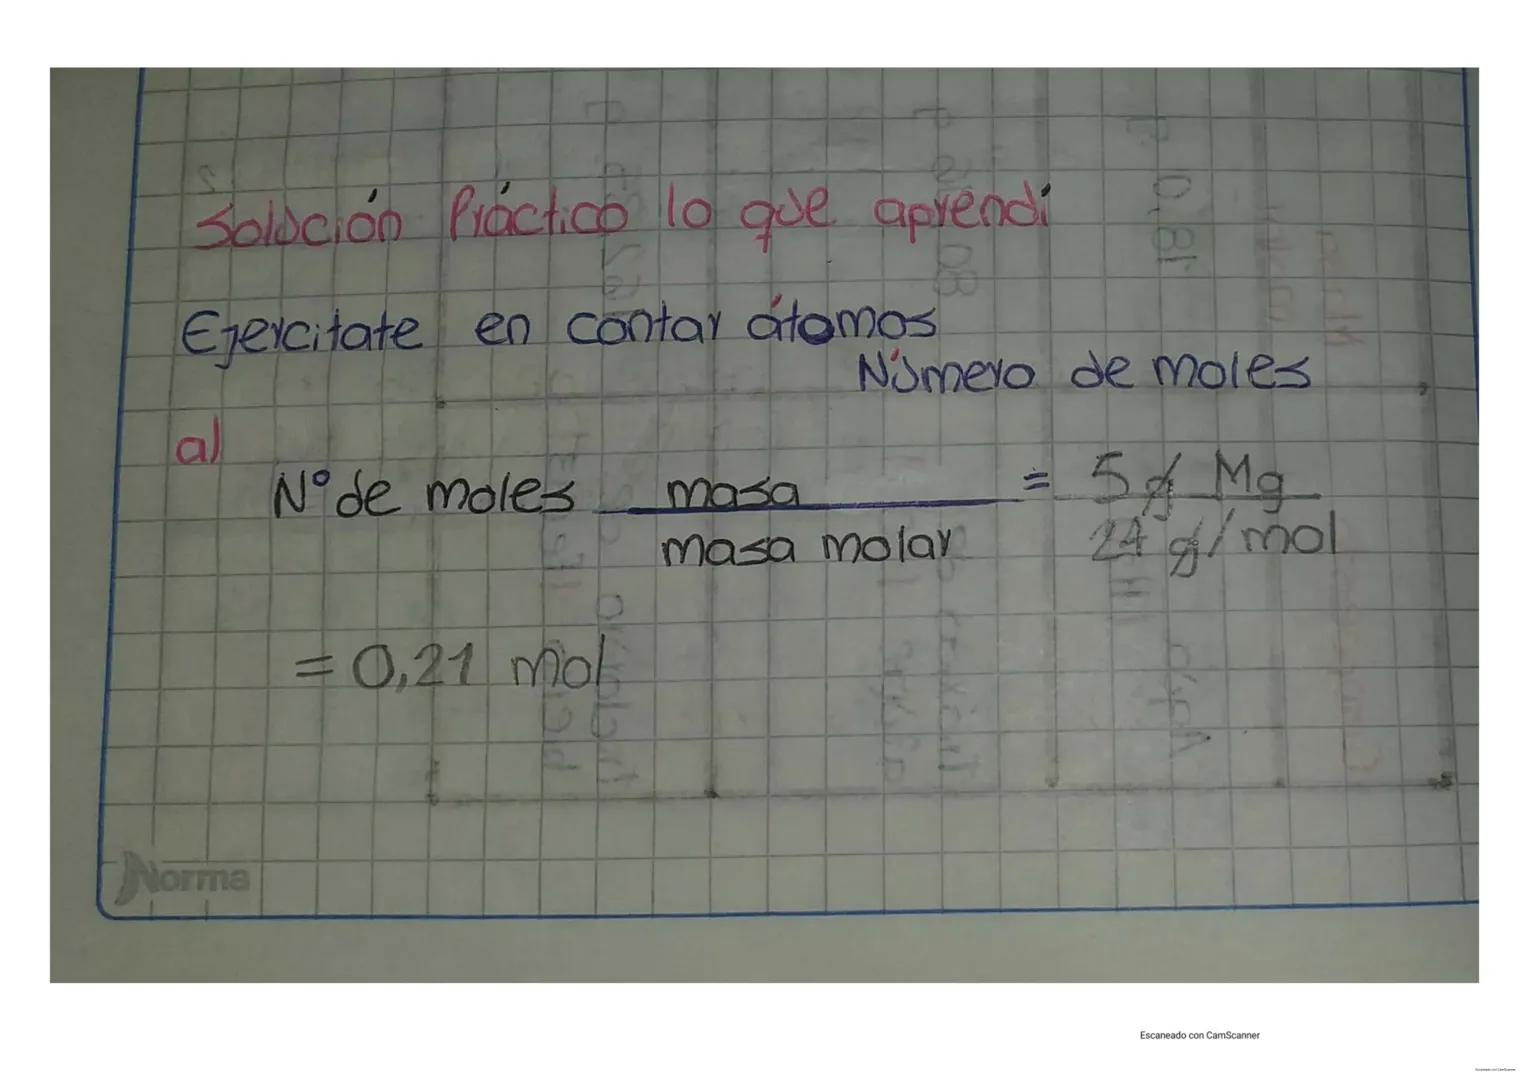 Solución Práctico lo que aprendí
Ejercitate en contar átomos
Número de moles
a)
N° de moles masa = 5 g Mg
masa molar 24 g/mol
= 0,21 mol
Norma
Escaneado con CamScanner
Escaneado con CamScanner